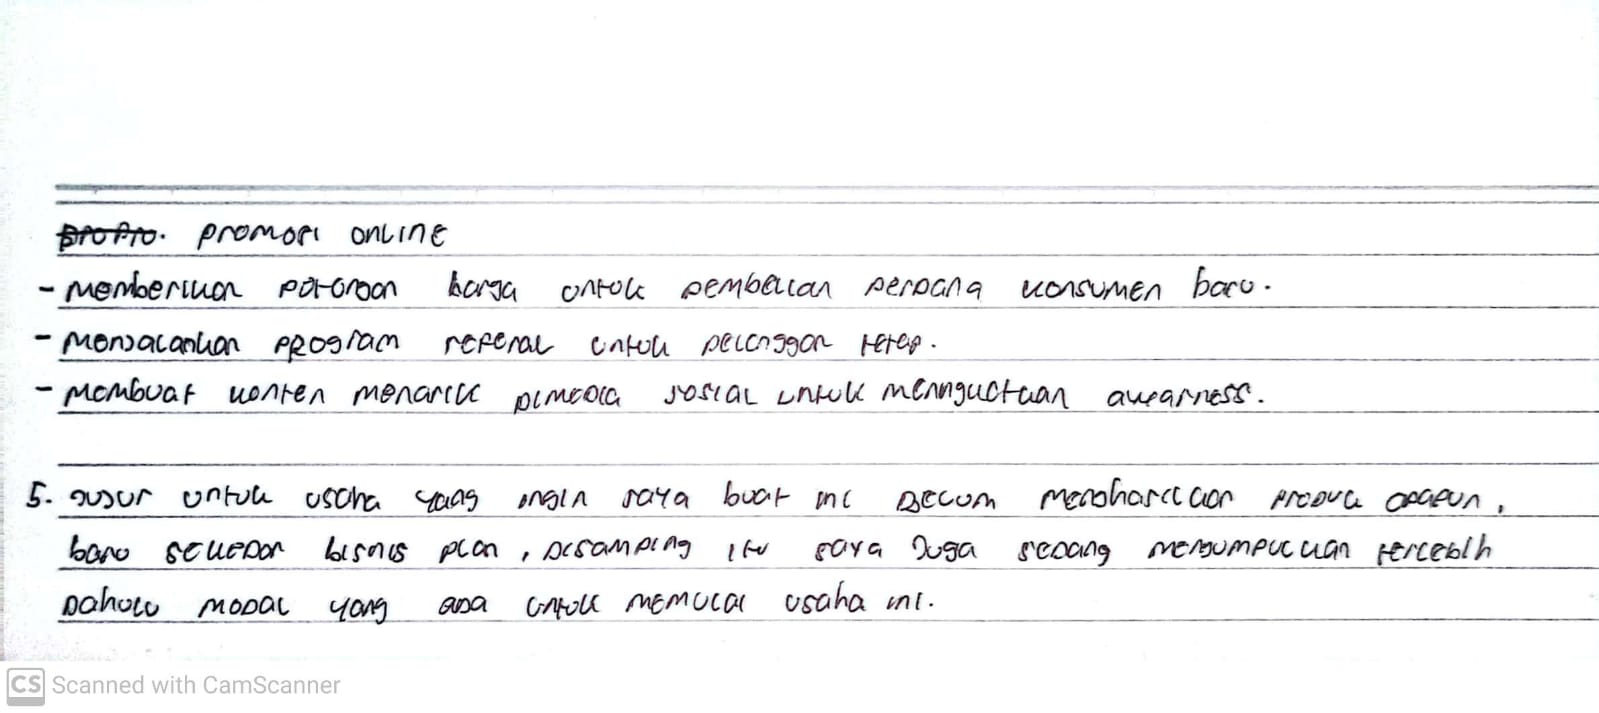 promosi online
- memberikan potongan harga untuk pembelian perdana konsumen baru.
- menjalankan program referal untuk pelanggan tetap.
- membuat konten menarik dimedia sosial untuk menguatkan awarness.
5. jujur untuk usaha yang ingin saya buat ini belum menghasilkan produk apapun,
baru sekedar bisnis plan, disamping itu saya juga sedang mengumpulkan terlebih
dahulu modal yang ada untuk memulai usaha ini.
CS Scanned with CamScanner